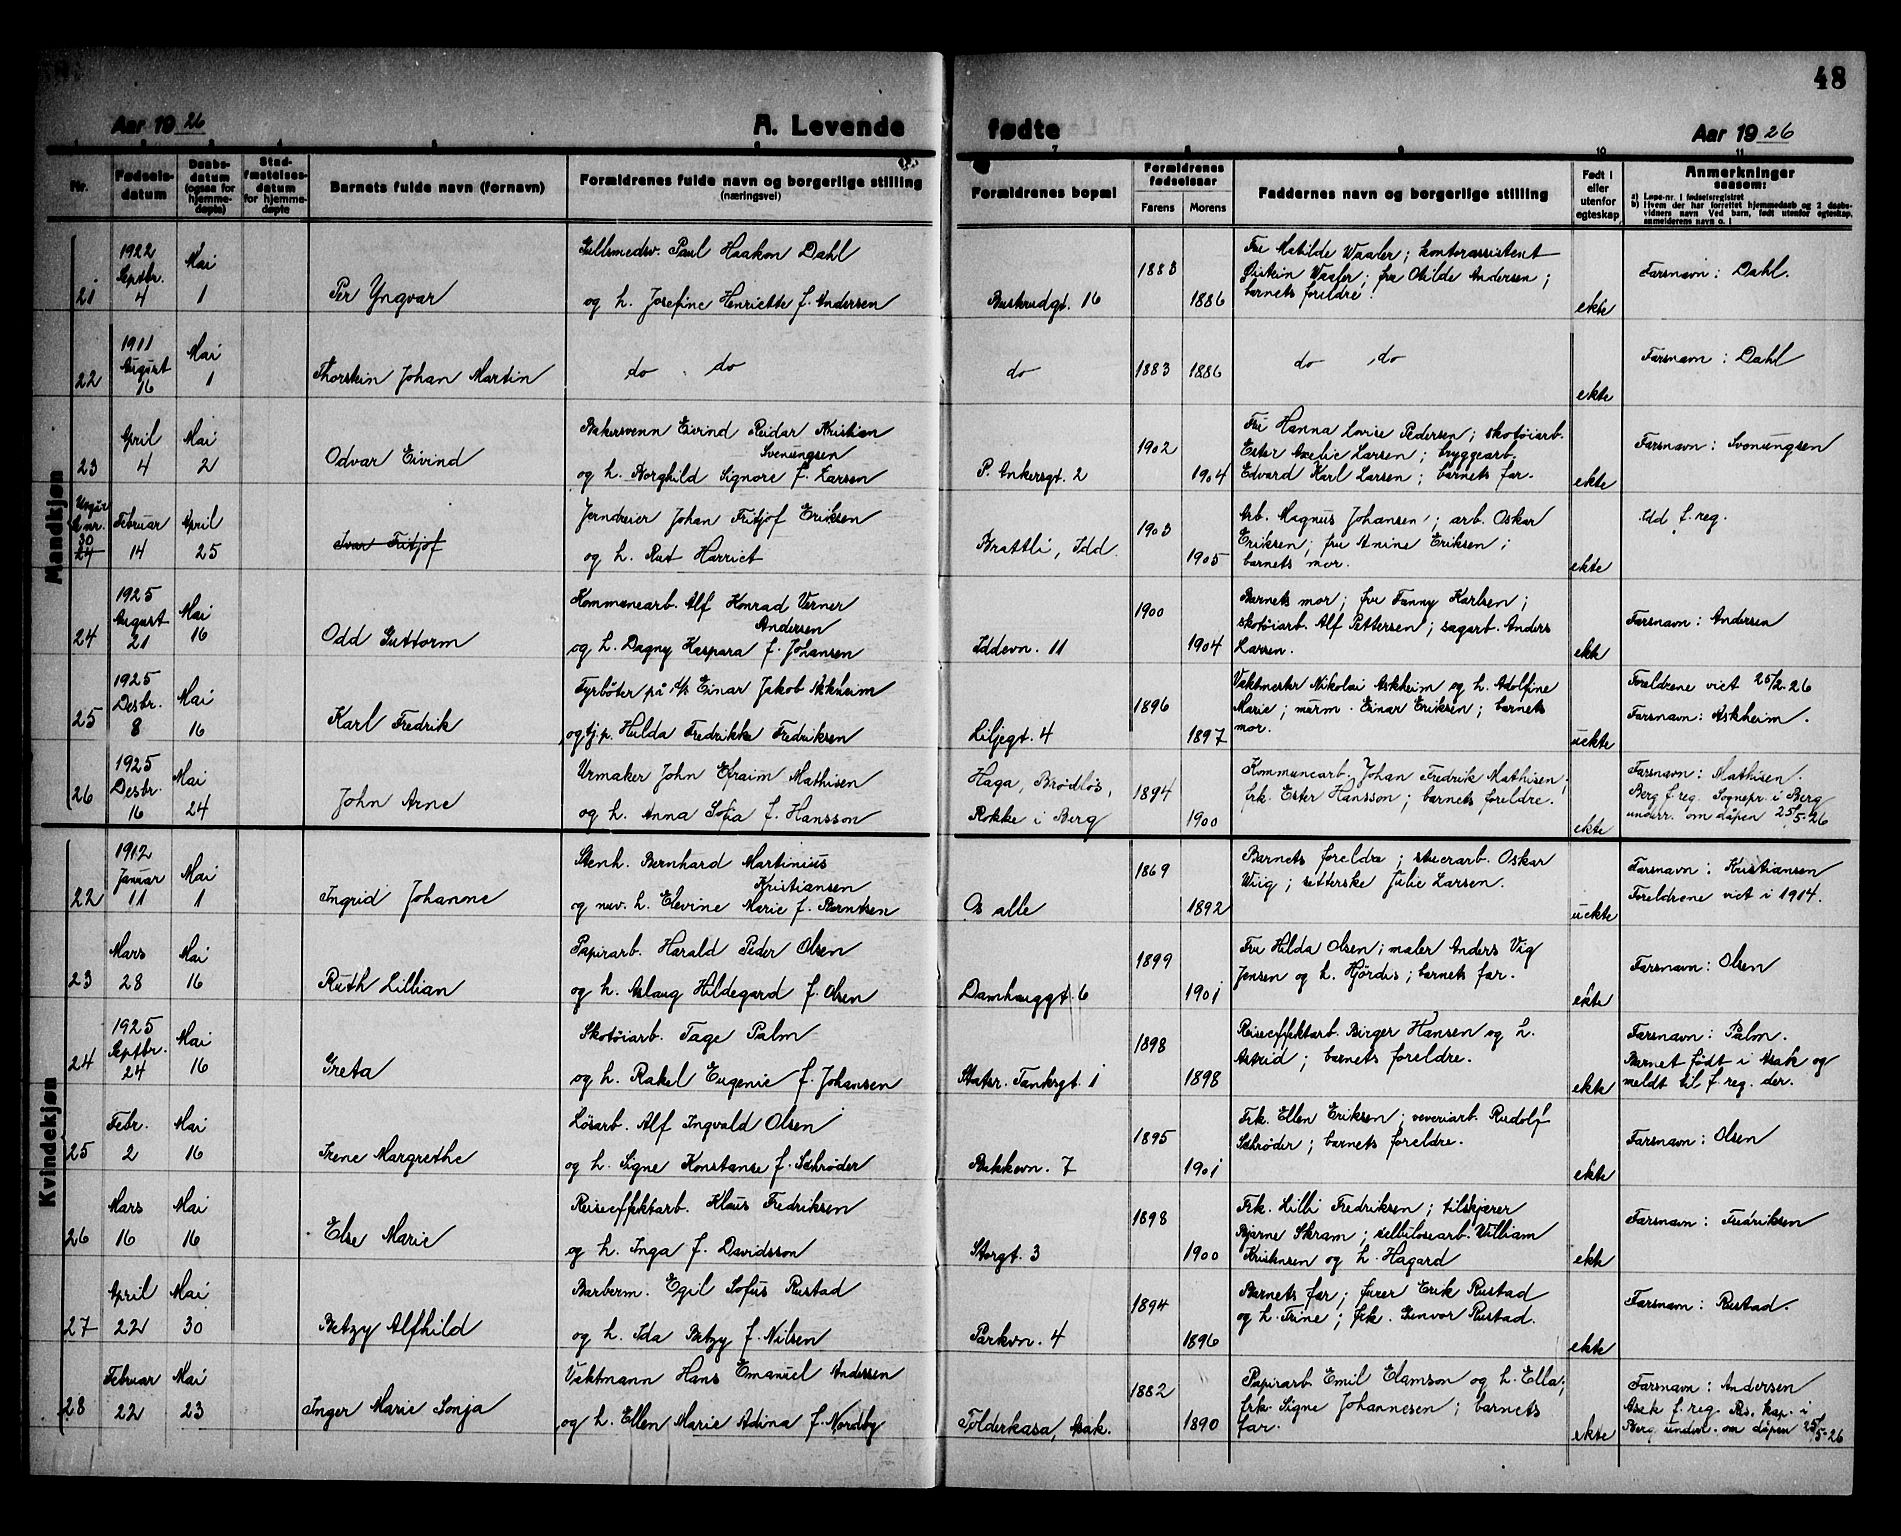 48
Aar 1926
A. Levende
fødte
Aar 1926
Nr.
Fødsels-
datum
Daabs-
datum
(ogsaa for
hjemme-
døpte)
Stad-
fæstelses-
datum
for hjemme-
døpte
Barnets fulde navn (fornavn)
Forældrenes fulde navn og borgerlige stilling
(næringsvei)
7 8 9 10 11
Forældrenes bopæl
Forældrenes
fødselsaar
Farens
Morens
Faddernes navn og borgerlige stilling
Født i
eller
utenfor
egteskap
Anmerkninger
saasom:
a) Løpe-nr. i fødselsregistret
b) Hvem der har forrettet hjemmedaab og 2 daabs-
vidners navn Ved barn, født utenfor egteskap,
anmelderens navn o. l
Mandkjøn
21
1922
Septbr.
4
Mai
1
Per Yngvar
Gullsmedsv. Paul Haakon Dahl
og h. Josefine Henriette f. Andersen
Buskrudgt. 16
1883
1886
Fru Matilde Waaler; kontorassistent
Øistein Waaler; fru Otilde Andersen;
barnets foreldre.
ekte
Farsnavn: Dahl.
22
1911
August
16
Mai
1
Thorstein Johan Martin
do do
do
1883
1886
do do
ekte
Farsnavn: Dahl
23
April
4
Mai
2
Odvar Eivind
Bakersvenn Eivind Reidar Kristian
Svenungsen
og h. Borghild Signore f. Larsen
P. Ankersgt. 2
1902
1904
Fru Hanna Lovise Pedersen; skotøiarb.
Ester Axelie Larsen; bryggearb.
Edvard Karl Larsen; barnets far.
ekte
Farsnavn: Svenungsen
Utgår
se nr.
30
24
Februar
14
April
25
Ivar Fritjof
Jerndreier Johan Fritjof Eriksen
og h. Rut Harriet
Brattli, Idd.
1903
1905
Arb. Magnus Johansen; arb. Oskar
Eriksen; fru Anine Eriksen;
barnets mor.
ekte
Idd f. reg.
24
1925
August
21
Mai
16
Odd Guttorm
Kommunearb. Alf Konrad Verner
Andersen
og h. Dagny Kaspara f. Johansen
Iddevn. 11
1900
1904
Barnets mor; fru Fanny Karlsen;
skotøiarb. Alf Pettersen; sagarb. Anders
Larsen.
ekte
Farsnavn: Andersen
25
1925
Desbr.
8
Mai
16
Karl Fredrik
Fyrbøter på d/s Einar Jakob Askheim
og tj.p. Hulda Fredrikke Fredriksen
Liljegt. 4
1896
1897
Vaktmester Nikolai Askheim og h. Adolfine
Marie; murm. Einar Eriksen; barnets
mor.
uekte
Foreldrene viet 25/2-26
Farsnavn: Askheim.
26
1925
Desbr.
16
Mai
24
John Arne
Urmaker John Efraim Mathisen
og h. Anna Sofia f. Hansson
Haga, Brødløs,
Rokke i Berg
1894
1900
Kommunearb. Johan Fredrik Mathisen;
frk. Ester Hansson; barnets foreldre.
ekte
Farsnavn: Mathisen.
Berg f. reg. Sognepr. i Berg
underr. om dåpen 25/5-26
Kvindekjøn
22
1912
Januar
11
Mai
1
Ingrid Johanne
Stenh. Bernhard Martinius
Kristiansen
og nuv. h. Elevine Marie f. Berntsen
Os alle
1869
1892
Barnets foreldre; stuerarb. Oskar
Wiig; setterske Julie Larsen.
uekte
Farsnavn: Kristiansen
Foreldrene viet i 1914.
23
Mars
28
Mai
16
Ruth Lillian
Papirarb. Harald Peder Olsen
og h. Aslaug Hildegard f. Olsen
Damhauggt. 6
1899
1901
Fru Hilda Olsen; maler Anders Vig
Jensen og h. Hjørdis; barnets far.
ekte
Farsnavn: Olsen
24
1925
Septbr.
24
Mai
16
Greta
Skotøiarb. Tage Palm
og h. Rakel Eugenie f. Johansen
Statsr. Tanksgt. 1
1898
1898
Reiseeffektarb. Birger Hansen og h.
Astrid; barnets foreldre.
ekte
Farsnavn: Palm.
Barnet født i Asak og
meldt til f. reg. der.
25
Febr.
2
Mai
16
Irene Margrethe
Løsarb. Alf Ingvald Olsen
og h. Signe Konstanse f. Schrøder
Bakkevn. 7
1895
1901
Frk. Ellen Eriksen; veveriarb. Rudolf
Schrøder; barnets foreldre.
ekte
Farsnavn: Olsen
26
Mars
16
Mai
16
Else Marie
Reiseeffektarb. Klaus Fredriksen
og h. Inga f. Davidsson
Storgt. 3
1898
1900
Frk. Lilli Fredriksen; tilskjærer
Bjarne Skram; cellulosearb. William
Kristensen og h. Hagard
ekte
Farsnavn: Fredriksen
27
April
22
Mai
30
Betzy Alfhild
Barberm. Egil Sofus Rustad
og h. Ida Betzy f. Nilsen
Parkvn. 4
1894
1896
Barnets far; furer Erik Rustad
og h. Trine; frk. Gunvor Rustad.
ekte
Farsnavn: Rustad.
28
Februar
22
Mai
23
Inger Marie Sonja
Vaktmann Hans Emanuel Andersen
og h. Ellen Marie Adina f. Nordby
Tolderkasa, Asak.
1882
1890
Papirarb. Emil Elamson og h. Ella;
frk. Signe Johannesen; barnets
far.
ekte
Farsnavn: Andersen
Asak f. reg. Res. kap. i
Berg underr. om dåpen 25/5-26